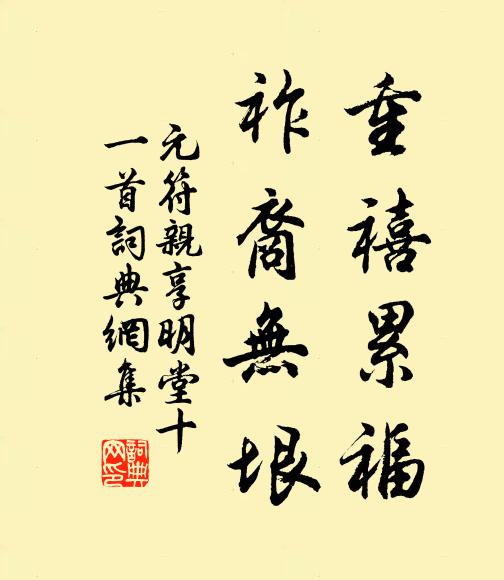 重禧累福
祚裔無垠
元符親享明堂十
一首詞典網集
詞典
网印